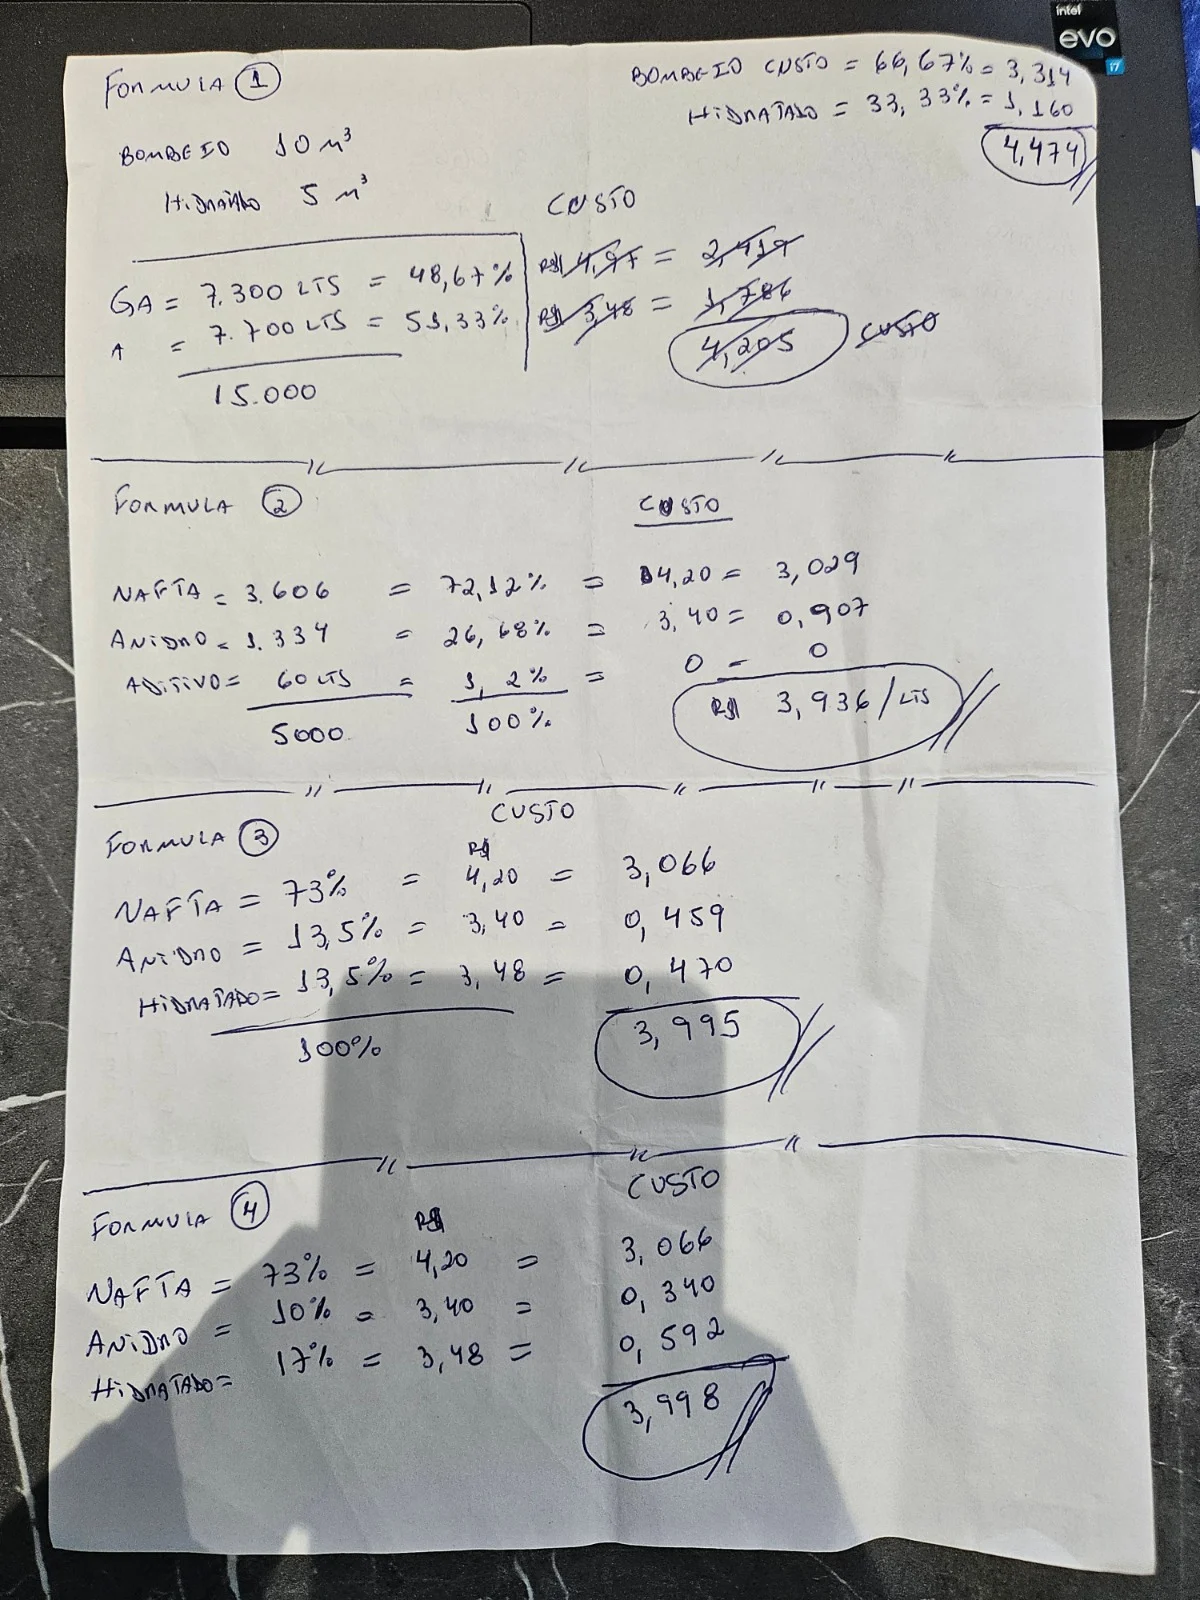 intel
evo
i7
FORMULA 1
BOMBEIO CUSTO = 66,67% = 3,314
HIDRATADO = 33,33% = 1,160
4,474
BOMBEIO 10 M³
HIDRATADO 5 M³
CUSTO
GA = 7.300 LTS = 48,67% R$ 4,97 = 2,419
A = 7.700 LTS = 51,33% R$ 3,48 = 1,786
15.000
4,205 CUSTO
FORMULA 2
CUSTO
NAFTA = 3.606 = 72,12% = 4,20 = 3,029
ANIDRO = 1.334 = 26,68% = 3,40 = 0,907
ADITIVO = 60 LTS = 1,2% = 0 = 0
5000 100% R$ 3,936/LTS
CUSTO
FORMULA 3
R$
NAFTA = 73% = 4,20 = 3,066
ANIDRO = 13,5% = 3,40 = 0,459
HIDRATADO = 13,5% = 3,48 = 0,470
100% 3,995
CUSTO
FORMULA 4
R$
NAFTA = 73% = 4,20 = 3,066
ANIDRO = 10% = 3,40 = 0,340
HIDRATADO = 17% = 3,48 = 0,592
3,998